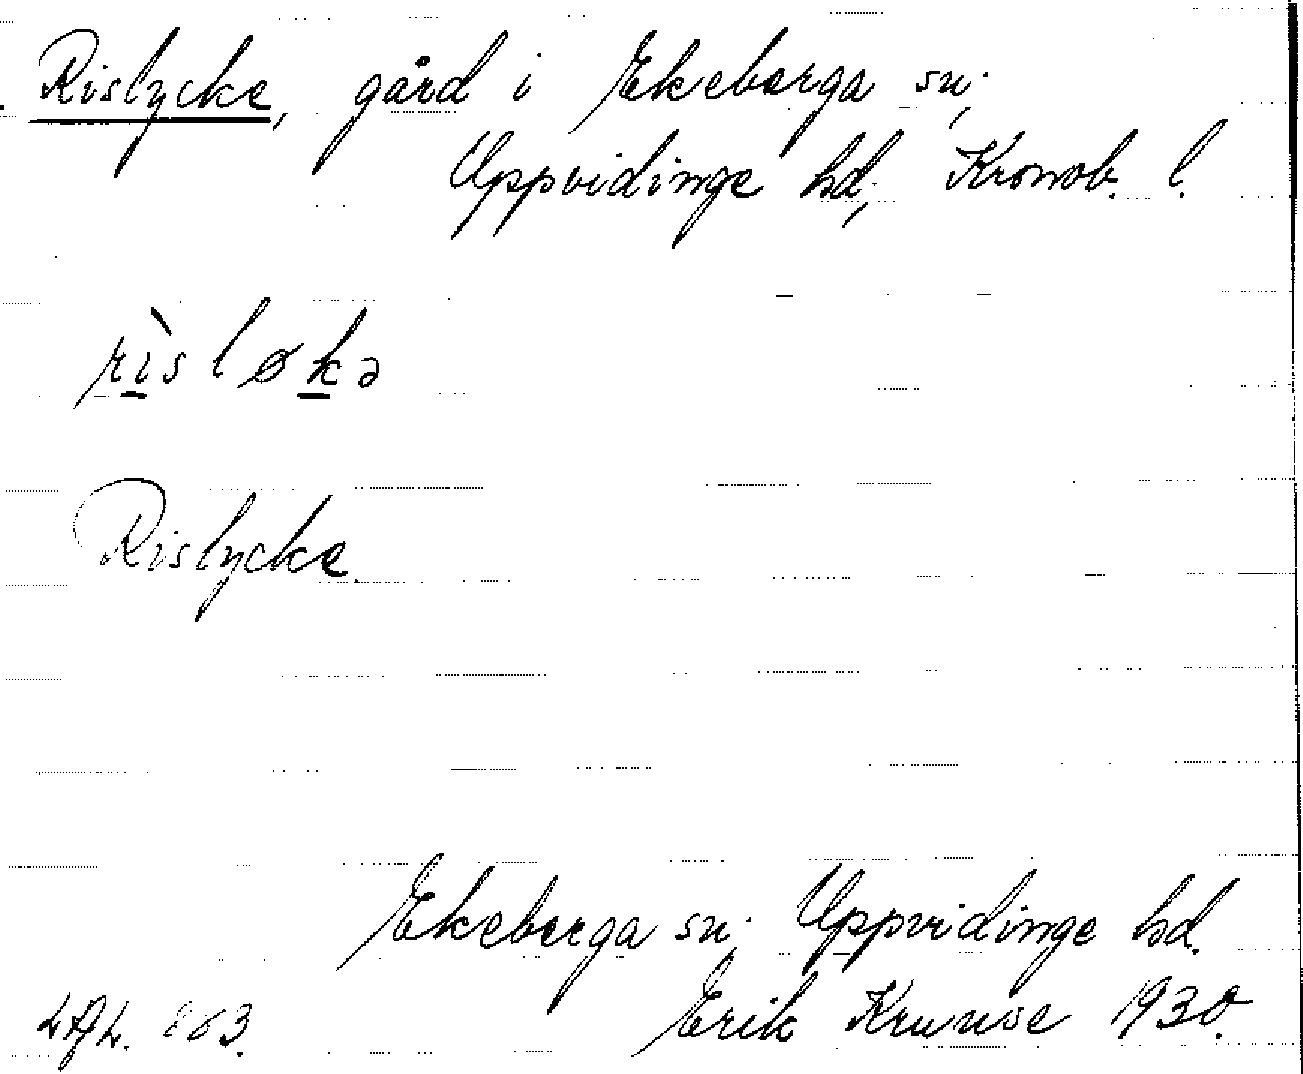 Rislycke, gård i Ekeberga sn,
Uppvidinge hd, Kronob. l.
rìsløkə
Rislycke
Ekeberga sn. Uppvidinge hd.
Erik Krunse 1930.